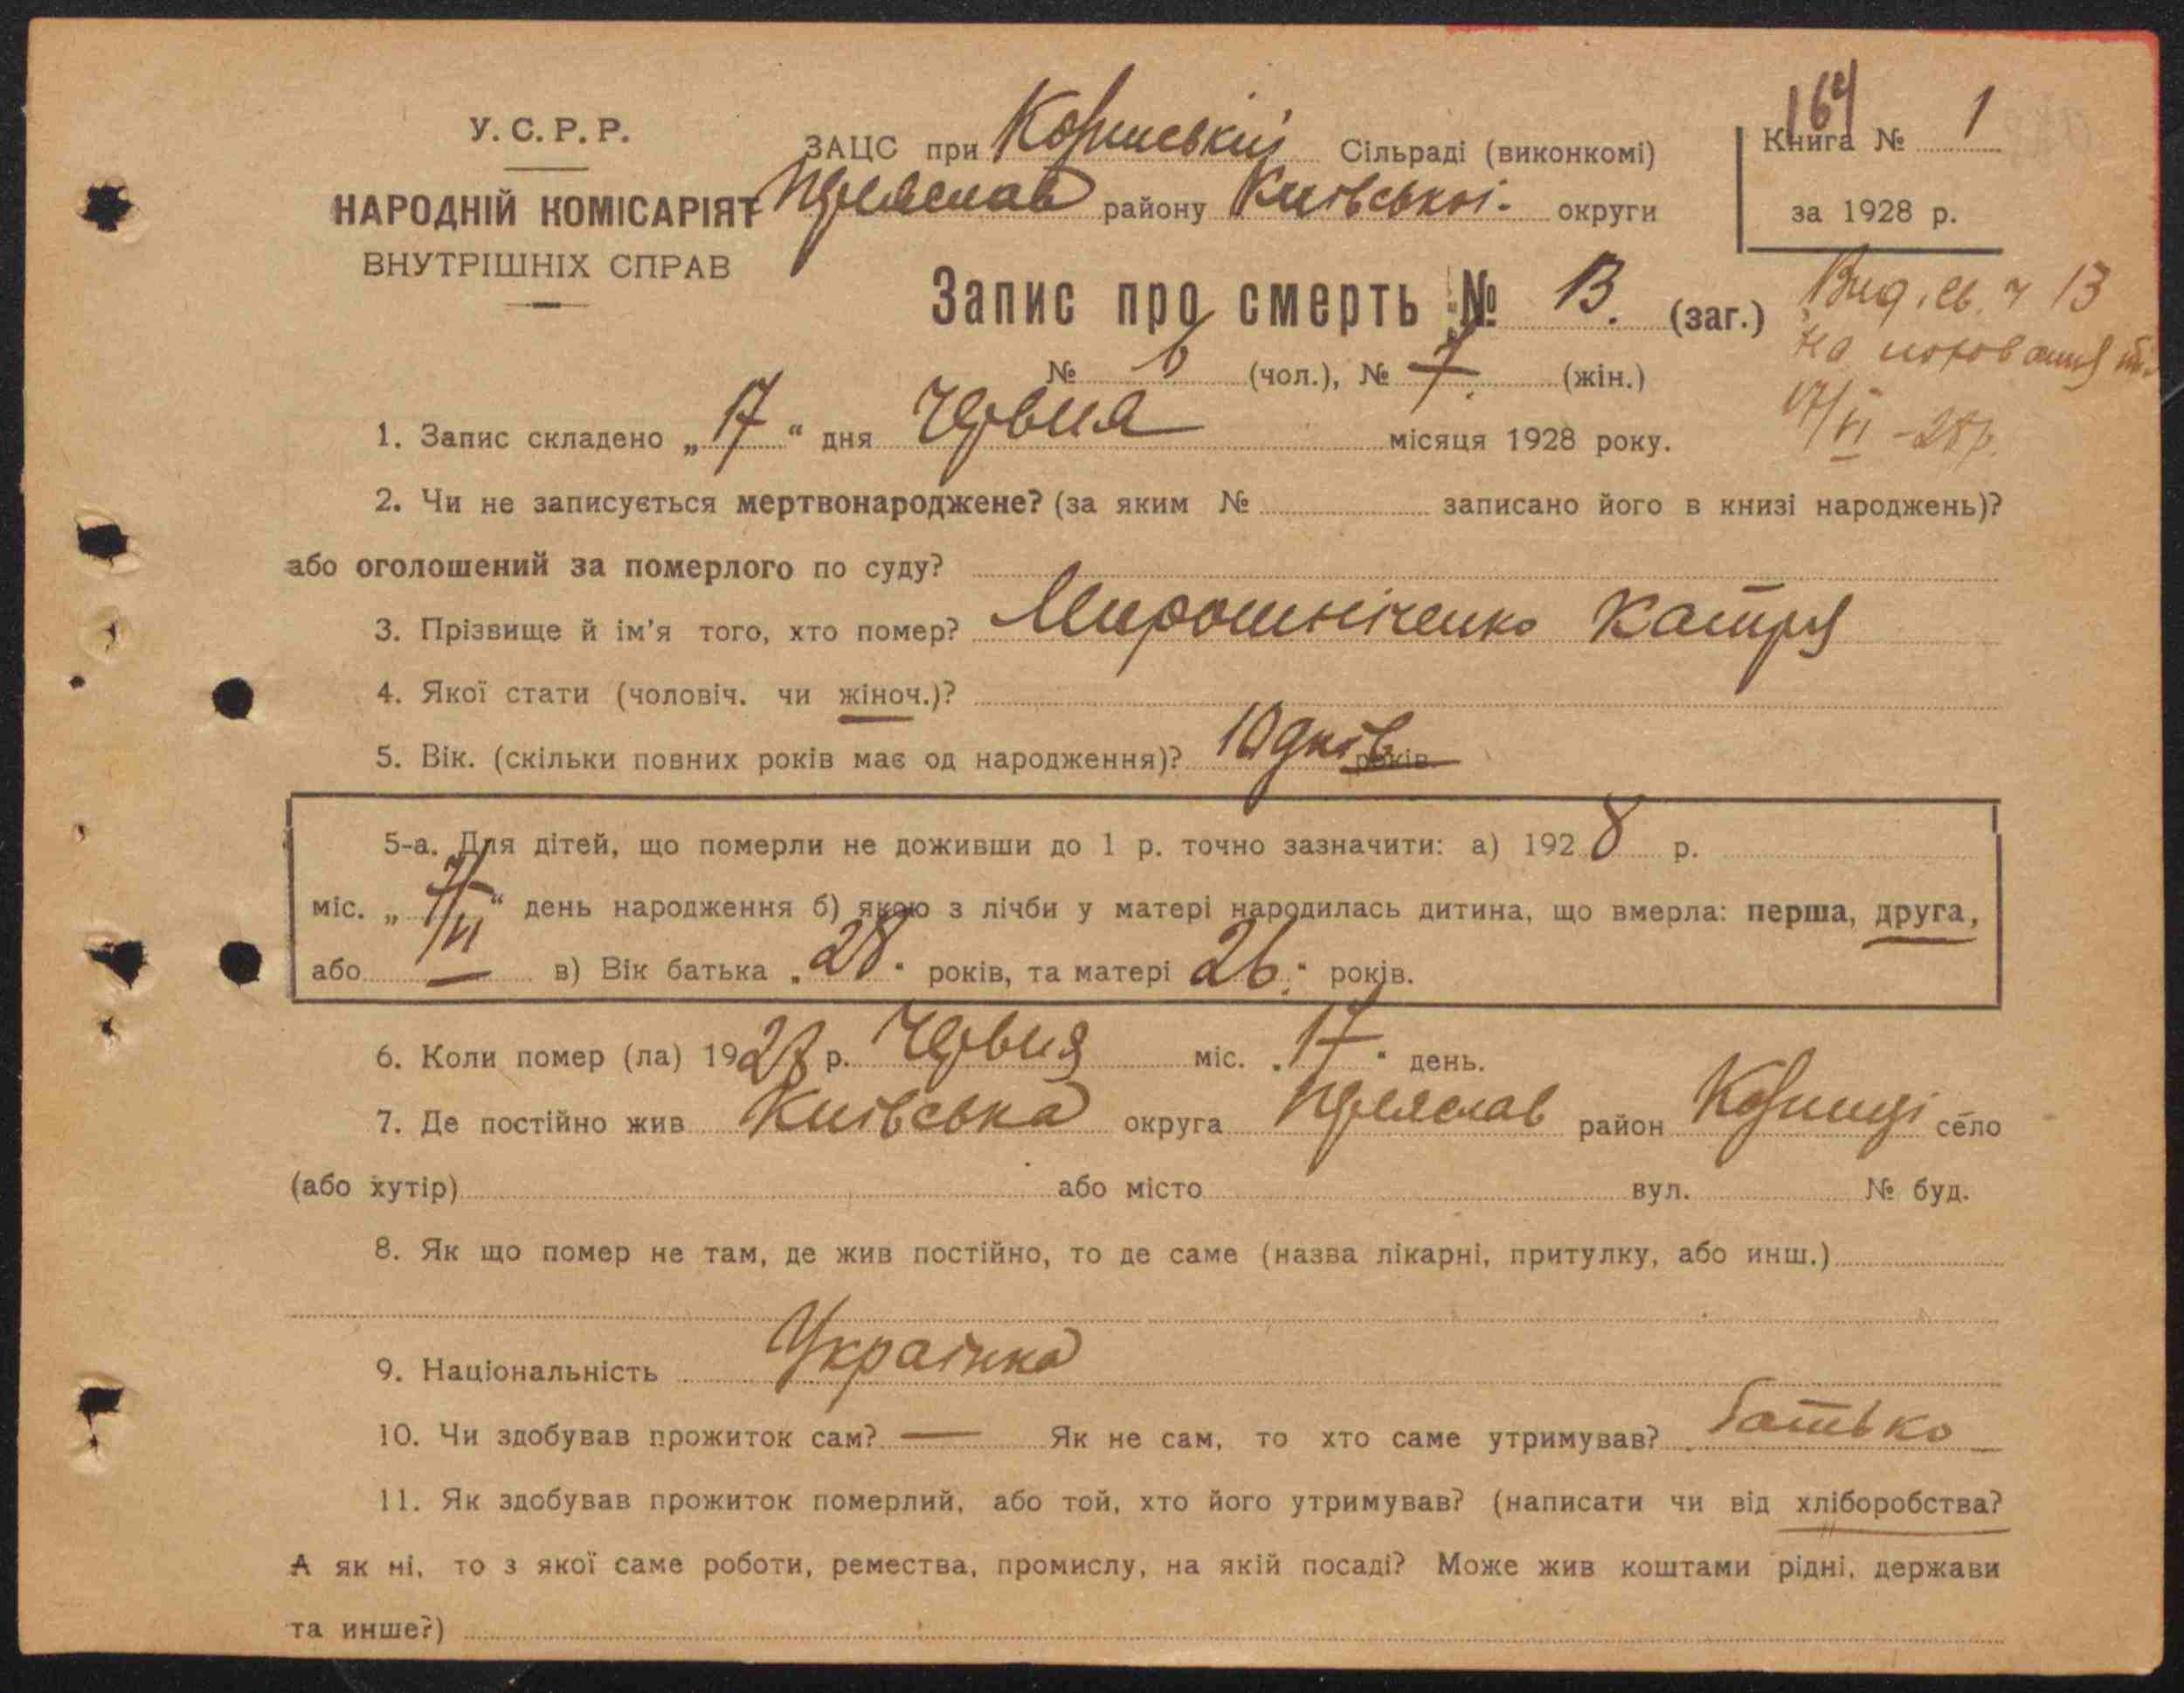 164
У. С. Р. Р.
НАРОДНІЙ КОМІСАРІЯТ
ВНУТРІШНІХ СПРАВ
ЗАЦС при Сільраді (виконкомі)
Переяслав району Київської округи
Книга № 1
за 1928 р.
Запис про смерть № 13. (заг.)
№ 6 (чол.), № 7. (жін.)
Вид. св. ч 13
на поховання
17/VI -28р.
1. Запис складено „17“ дня Червня місяця 1928 року.
2. Чи не записується мертвонароджене? (за яким № записано його в книзі народжень)?
або оголошений за померлого по суду?
3. Прізвище й ім'я того, хто помер? Мирошніченко Катря
4. Якої стати (чоловіч. чи жіноч.)?
5. Вік. (скільки повних років має од народження)? 10 днів років
5-а. Для дітей, що померли не доживши до 1 р. точно зазначити: а) 1928 р.
міс. „7/VI“ день народження б) якою з лічби у матері народилась дитина, що вмерла: перша, друга,
або — в) Вік батька „28“ років, та матері 26." років.
6. Коли помер (ла) 1928 р. Червня міс. „17“ день.
7. Де постійно жив Київська округа Переяслав район село
(або хутір) або місто вул. № буд.
8. Як що помер не там, де жив постійно, то де саме (назва лікарні, притулку, або инш.)
9. Національність Українка
10. Чи здобував прожиток сам? — Як не сам, то хто саме утримував? батько
11. Як здобував прожиток померлий, або той, хто його утримував? (написати чи від хліборобства?
А як ні, то з якої саме роботи, ремества, промислу, на якій посаді? Може жив коштами рідні, держави
та инше?)